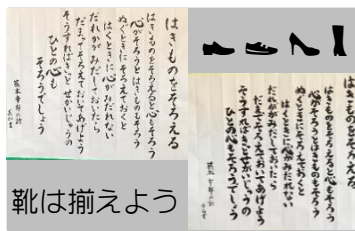 はきものをそろえる
はきものをそろえると心もそろう
心がそろうとはきものもそろう
ぬぐときにそろえておくと
はくときに心がみだれない
だれかがみだしておいたら
だまってそろえておいてあげよう
そうすればきっとせかいじゅうの
ひとの心も
そろうでしょう
靴は揃えよう
はきものをそろえる
はきものをそろえると心もそろう
心がそろうとはきものもそろう
ぬぐときにそろえておくと
はくときに心がみだれない
だれかがみだしておいたら
だまってそろえておいてあげよう
そうすればきっとせかいじゅうの
ひとの心もそろうでしょう